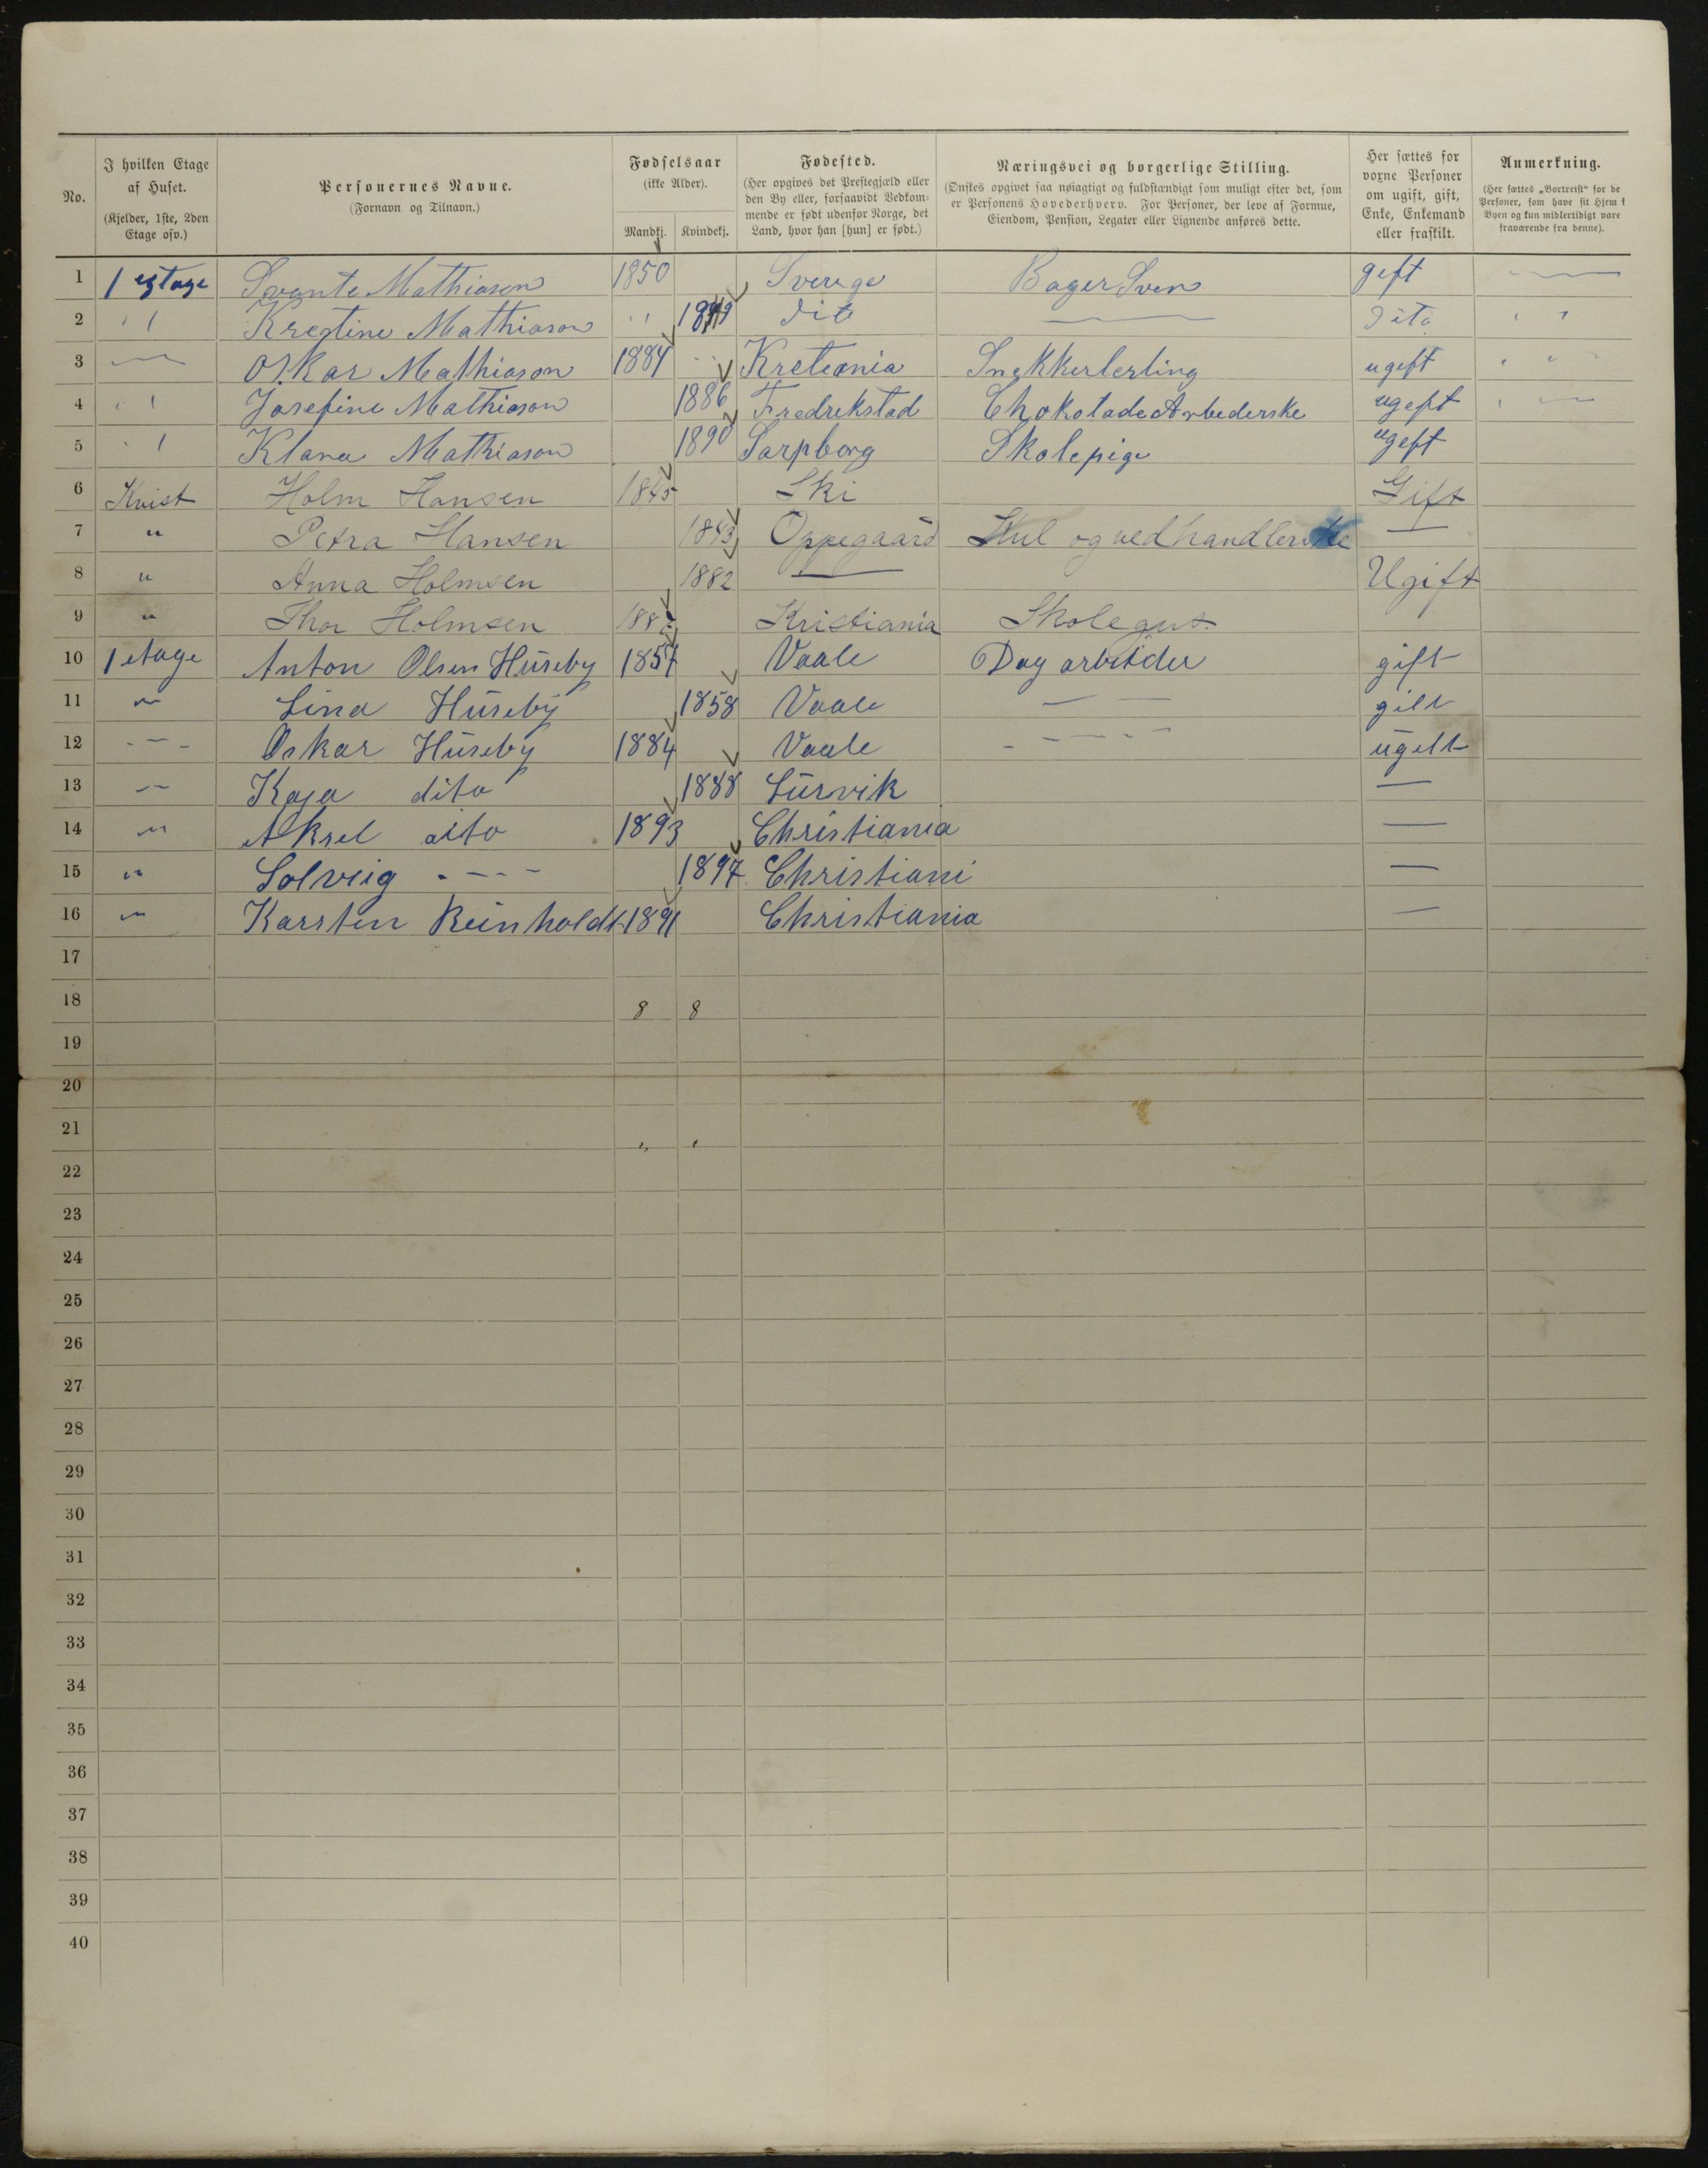 No.
I hvilken Etage af Huset.
(Kjelder, 1ste, 2den Etage osv.)
Personernes Navne.
(Fornavn og Tilnavn.)
Fødselsaar
(ikke Alder).
Mandkj. Kvindekj.
Fødested.
(Her opgives det Prestegjæld eller den By eller, forsaavidt Vedkommende er født udenfor Norge, det Land, hvor han [hun] er født.)
Næringsvei og borgerlige Stilling.
(Ønskes opgivet saa nøiagtigt og fuldstændigt som muligt efter det, som er Personens Hovederhverv. For Personer, der leve af Formue, Eiendom, Pension, Legater eller Lignende anføres dette.
Her sættes for voxne Personer om ugift, gift, Enke, Enkemand eller fraskilt.
Anmerkning.
(Her sættes „Bortreist“ for de Personer, som have sit Hjem i Byen og kun midlertidigt vare fraværende fra denne).
1 1 egtage Svante Mathiason 1850 Sverige Bager Sven geft —
2 " Kregtine Mathiason " dito — dito "
3 — Oskar Mathiason 1884 Kretiania Snekkerlerling ugeft "
4 " Josefine Mathiason 1886 Fredrekstad Chokolade Arbederske ugeft "
5 " Klara Mathiason 1890 Sarpborg Skolepige ugeft
6 Kvist Holm Hansen 1845 Ski Gift
7 " Petra Hansen 1843 Oppegaard Kul og ved handlerske —
8 " Anna Holmsen 1882 — Ugift
9 " Thor Holmsen Kristiania Skolegut.
10 1 etage Anton Olsen Huseby 1857 Vaale Dag arbeider gift
11 " Lina Huseby 1858 Vaale — — gift
12 - — - Oskar Huseby 1884 Vaale - — — - - ugift
13 " Kaja dito 1888 Lurvik —
14 " Aksel dito 1893 Christiania —
15 " Solveig - — — - 1897 Christiani —
16 " Karsten Reinholdt 1891 Christiania —
17
18 8 8
19
20
21 " "
22
23
24
25
26
27
28
29
30
31
32
33
34
35
36
37
38
39
40